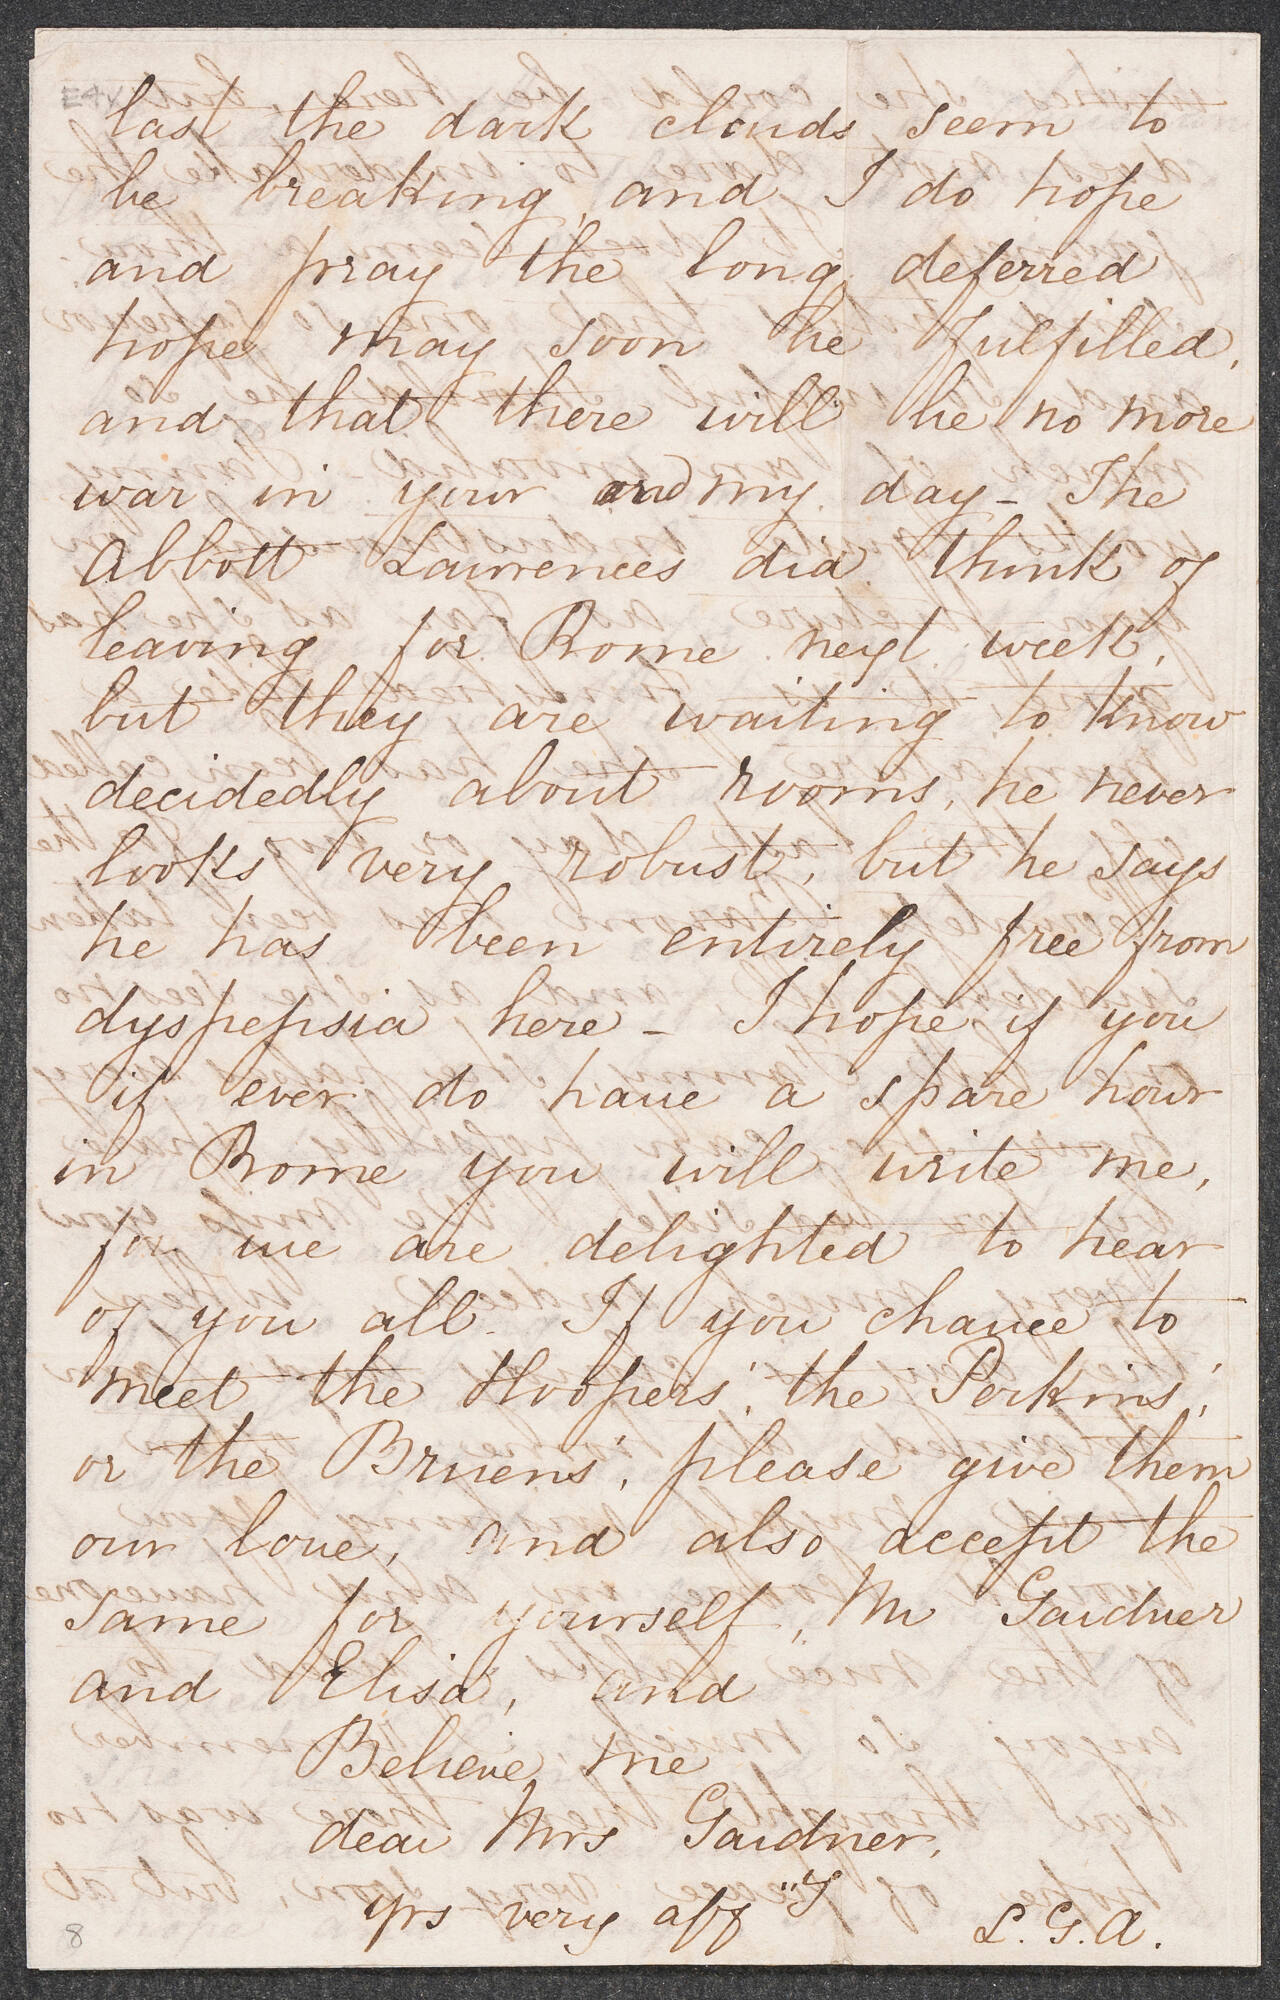 last the dark clouds seem to
be breaking, and I do hope
and pray the long deferred
hope may soon be fulfilled,
and that there will be no more
war in your and my day - The
Abbott Lawrences did think of
leaving for Rome next week,
but they are waiting to know
decidedly about rooms, he never
looks very robust, but he says
he has been entirely free from
dyspepsia here - I hope if you
if ever do have a spare hour
in Rome you will write me,
for we are delighted to hear
of you all. If you chance to
meet the Hoopers', the Perkins',
or the Bruens', please give them
our love, and also accept the
same for yourself, Mr Gardner
and Elisa, and
Believe me
dear Mrs Gardner,
Yrs very aff"y
L. G. A.
8